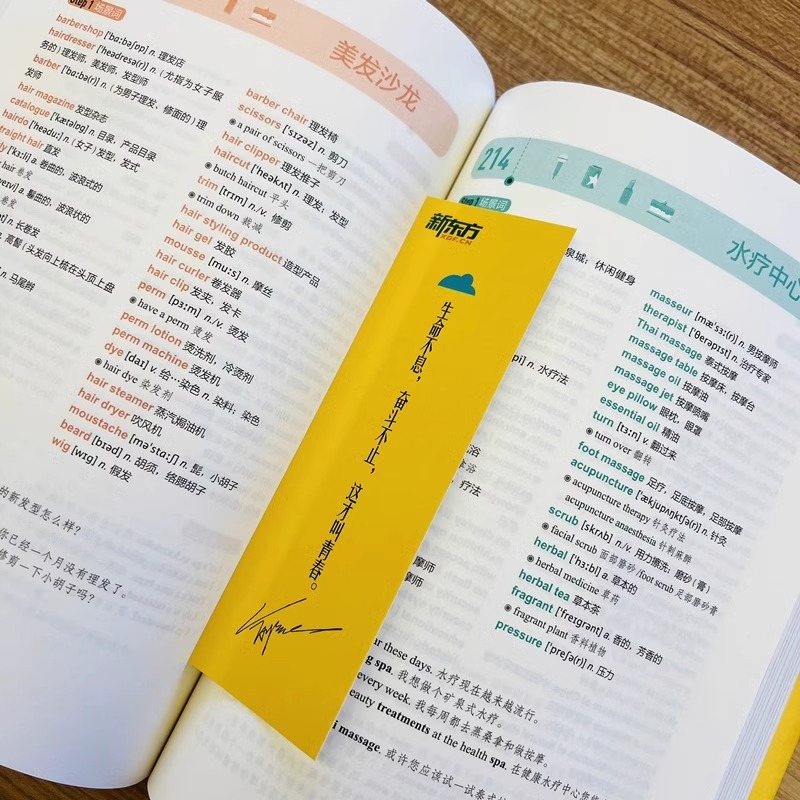 Step 1 场景词
美发沙龙
barbershop [ˈbɑːbəʃɒp] n. 理发店
hairdresser [ˈheədresə(r)] n. (尤指为女子服
务的) 理发师, 美发师, 发型师
barber [ˈbɑːbə(r)] n. (为男子理发、修面的) 理
发师
hair magazine 发型杂志
catalogue [ˈkætəlɒɡ] n. 目录, 产品目录
hairdo [ˈheəduː] n. (女子) 发型, 发式
straight hair 直发
a. 卷曲的, 波浪式的
hair 卷发
a. 鬈曲的, 波浪状的
n. 长卷发
n. 高髻 (头发向上梳在头顶上盘
n. 马尾辫
的新发型怎么样?
你已经一个月没有理发了。
修剪一下小胡子吗?
barber chair 理发椅
scissors [ˈsɪzəz] n. 剪刀
a pair of scissors 一把剪刀
hair clipper 理发推子
haircut [ˈheəkʌt] n. 理发; 发型
butch haircut 平头
trim [trɪm] n./v. 修剪
trim down 裁减
hair styling product 造型产品
hair gel 发胶
mousse [muːs] n. 摩丝
hair curler 卷发器
hair clip 发夹, 发卡
perm [pɜːm] n./v. 烫发
have a perm 烫发
perm lotion 烫洗剂, 冷烫剂
perm machine 烫发机
dye [daɪ] v. 给…染色 n. 染料; 染色
hair dye 染发剂
hair steamer 蒸汽焗油机
hair dryer 吹风机
moustache [məˈstɑːʃ] n. 髭, 小胡子
beard [bɪəd] n. 胡须, 络腮胡子
wig [wɪɡ] n. 假发
新东方
XDF.CN
生命不息，奋斗不止，这才叫青春。
214
水疗中心
Step 1 场景词
泉城; 休闲健身
n. 水疗法
浴
疗法
摩师
摩师
masseur [mæˈsɜː(r)] n. 男按摩师
therapist [ˈθerəpɪst] n. 治疗专家
Thai massage 泰式按摩
massage table 按摩床, 按摩台
massage oil 按摩油
massage jet 按摩喷嘴
eye pillow 眼枕, 眼罩
essential oil 精油
turn [tɜːn] v. 翻过来
turn over 翻转
foot massage 足疗, 足底按摩, 足部按摩
acupuncture [ˈækjupʌŋktʃə(r)] n. 针灸
acupuncture therapy 针灸疗法
acupuncture anaesthesia 针刺麻醉
scrub [skrʌb] n./v. 用力擦洗; 磨砂 (膏)
facial scrub 面部磨砂/foot scrub 足部磨砂膏
herbal [ˈhɜːbl] a. 草本的
herbal medicine 草药
herbal tea 草本茶
fragrant [ˈfreɪɡrənt] a. 香的, 芳香的
fragrant plant 香料植物
pressure [ˈpreʃə(r)] n. 压力
these days. 水疗现在越来越流行。
spa. 我想做个矿泉式水疗。
every week. 我每周都去蒸桑拿和做按摩。
treatments at the health spa. 在健康水疗中心
massage. 或许您应该试一试泰式